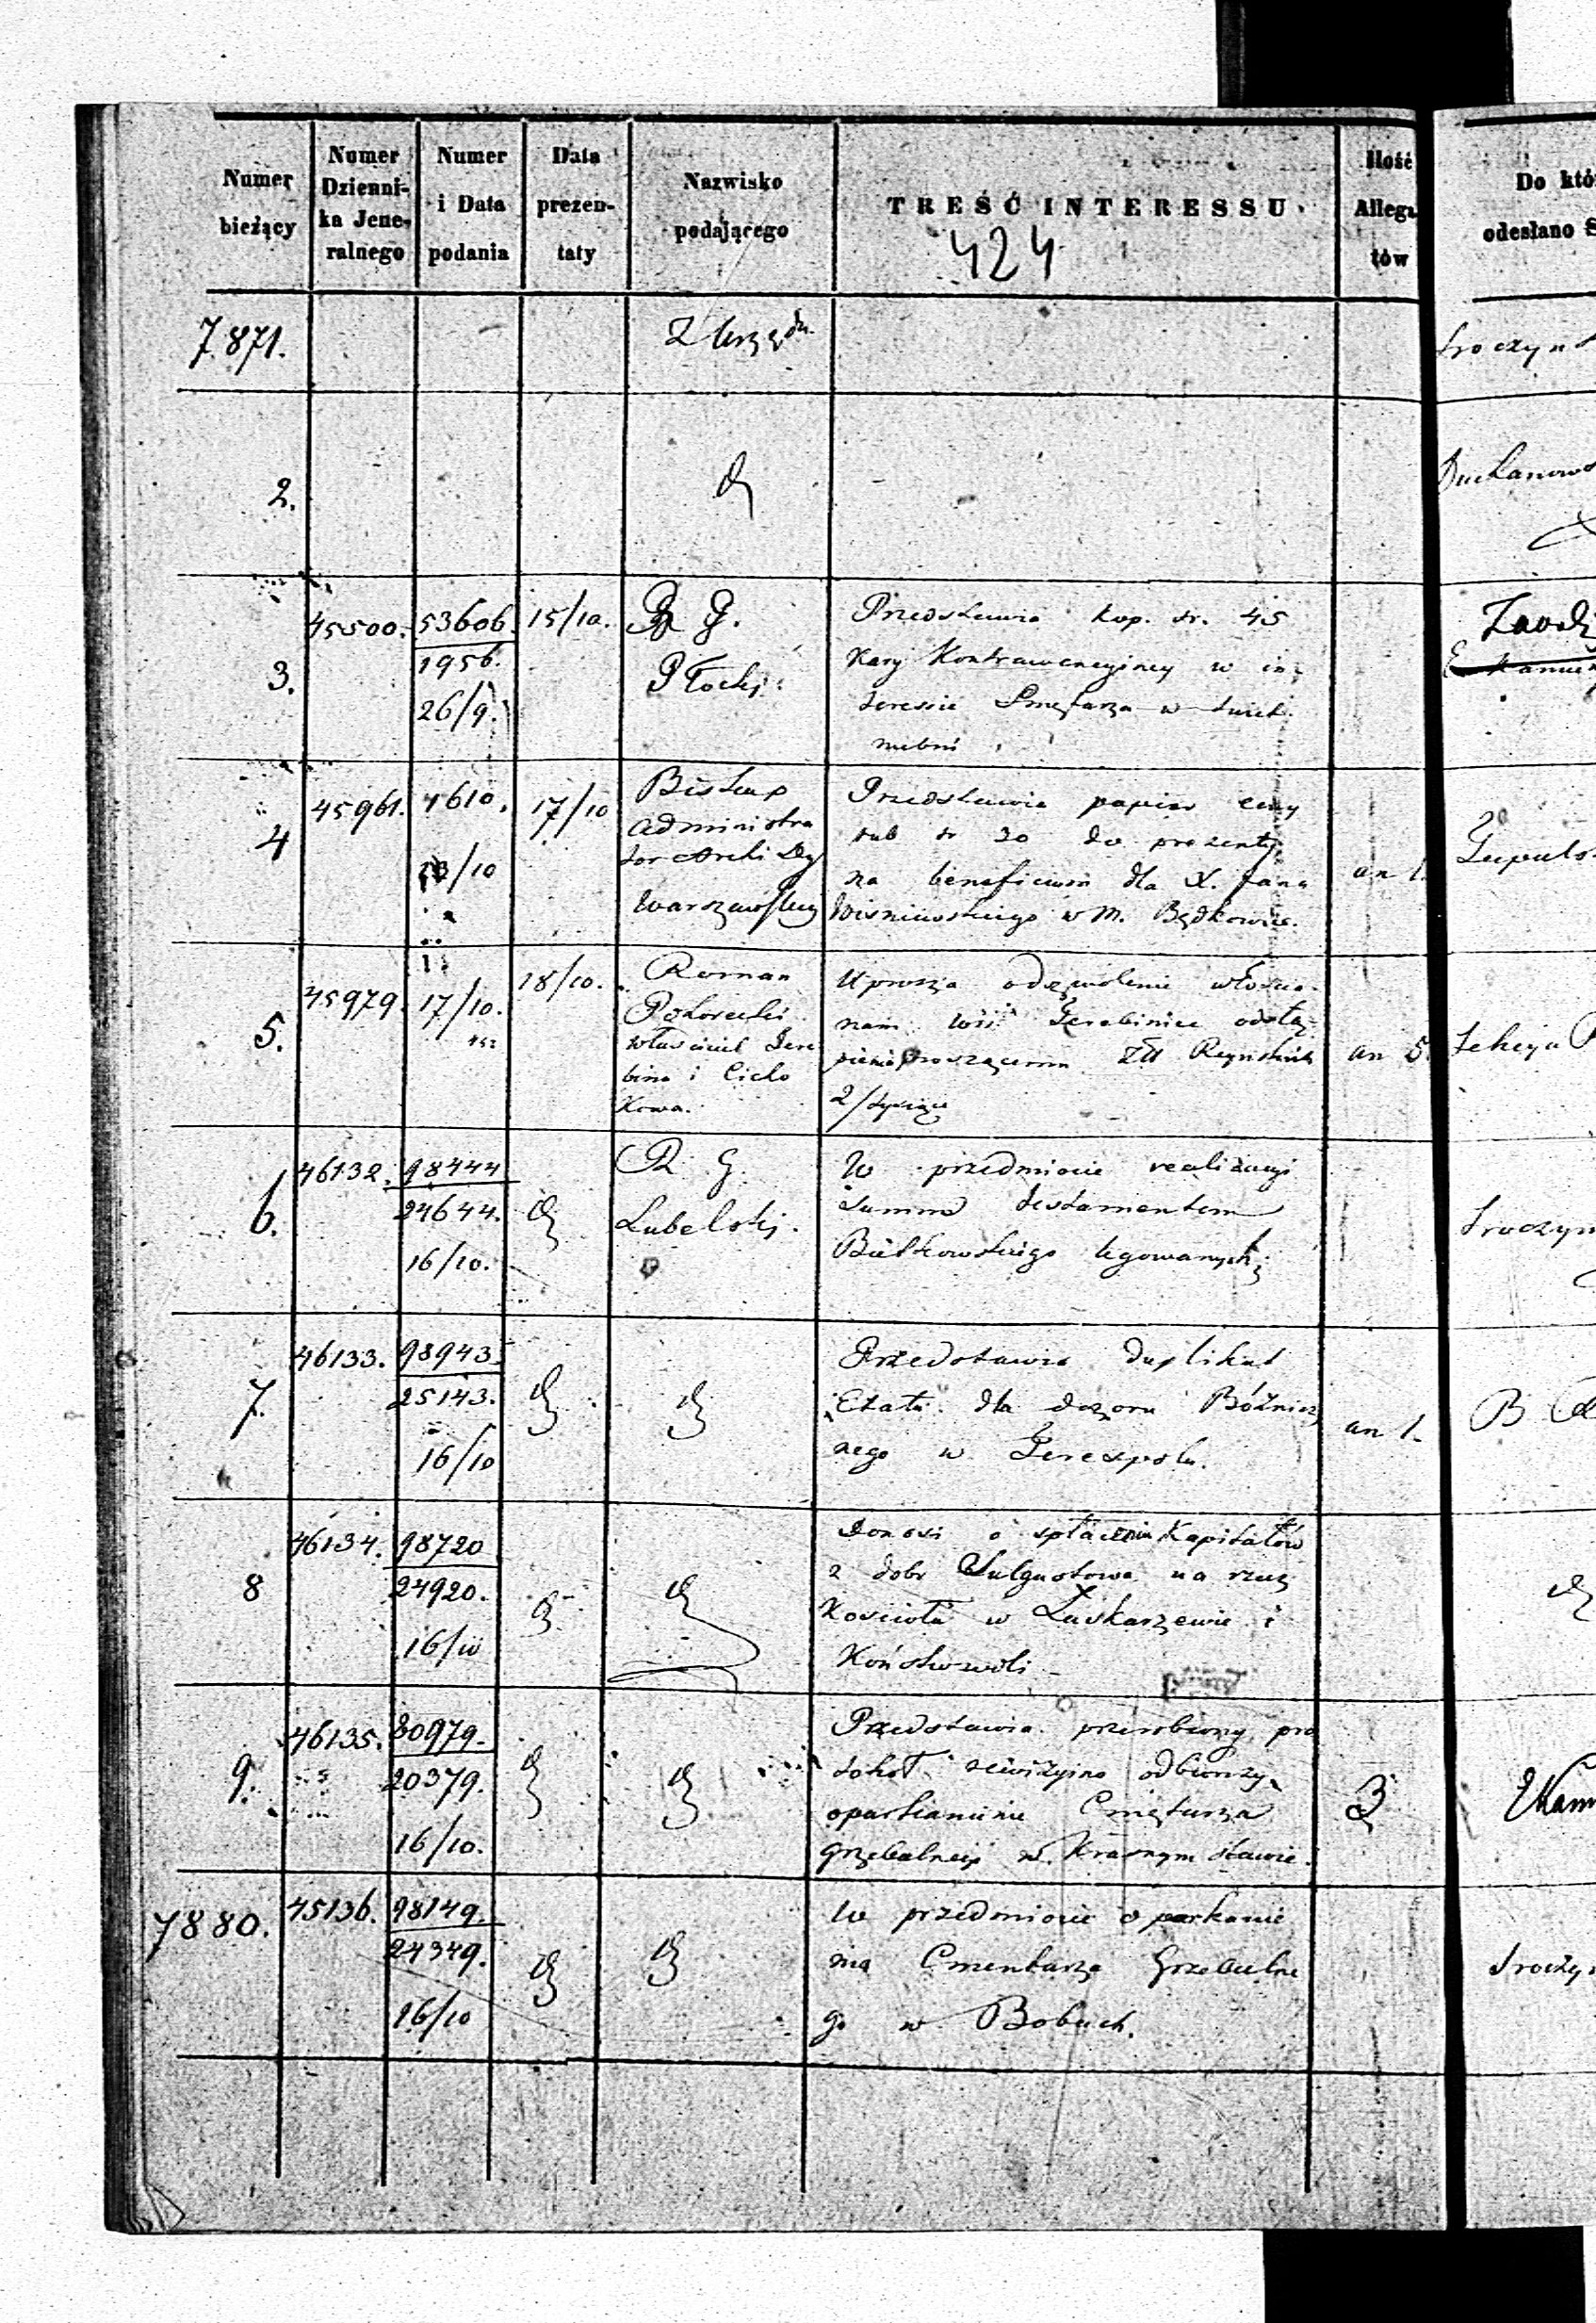 Numer bieżący
Numer Dziennika Jeneralnego
Numer i Data podania
Data prezentaty
Nazwisko podającego
TREŚĆ INTERESSU.
Ilość Allegatów
Do któ
odesłano S
424
7871.
Z Urzędu.
2.
3.
45500.
53606.
1956.
26/9.
15/10.
R G.
Płocki.
Przedstawia kop. sr. 45
kary Kontrawencyjney w in
teressie Smętarza w
4
45961.
4610.
/10
17/10
Biskup
Administra
tor Archi Dyj
Warszawskiej
Przedstawia papier ceny
rub sr 30 do prezenty
na beneficium dla X. Jana
Wisniewskiego w M. Będkowie.
an 1.
5.
45979.
17/10.
18/10.
Roman
właściciel Dere
bina i Cicho
Uprasza
nam wsi
2/tysiące
an 5.
6.
46132.
98444
24644.
16/10.
R. G.
Lubelski.
W przedmiocie realizacyi
summ testamentem
Bielkowskiego legowanych
7.
46133.
98943.
25143.
16/10
Przedstawia duplikat
Etatu dla dozoru Bóżnicz
nego w Terespolu.
an 1.
8
46134.
98720
24920.
16/10
Donosi o spłaceniu Kapitałów
z dobr Sulgostowa na rzecz
Kościoła w Łaskarzewie i
Końskowoli
9.
46135.
80979.
20379.
16/10.
Przedstawia przerobiony pro
tokoł rewizyino odbiorczy
oparkanienia Cmętarza
grzebalnego w Krasnym stawie.
3
7880.
45136.
98149.
24349.
16/10
W przedmiocie oparkanie
nia Cmentarza Grzebalne
go w Bobach.